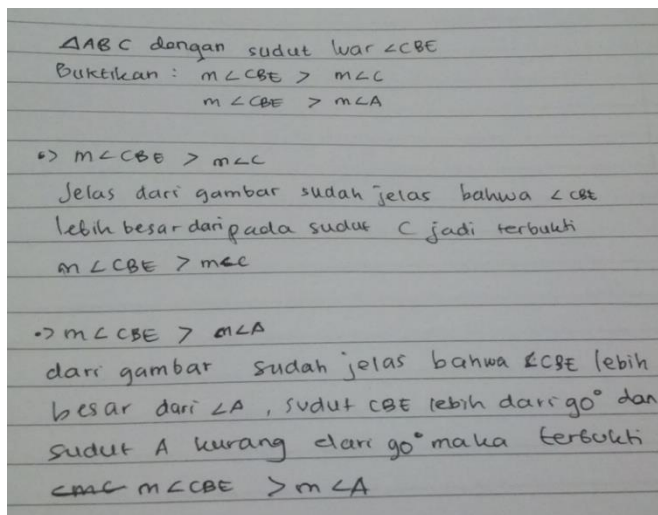 △ABC dengan sudut luar ∠CBE
Buktikan : m∠CBE > m∠C
m∠CBE > m∠A
•> m∠CBE > m∠C
Jelas dari gambar sudah jelas bahwa ∠CBE
lebih besar daripada sudut C jadi terbukti
m∠CBE > m∠C
•> m∠CBE > m∠A
dari gambar sudah jelas bahwa ∠CBE lebih
besar dari ∠A, sudut CBE lebih dari 90° dan
sudut A kurang dari 90° maka terbukti
m∠CBE > m∠A